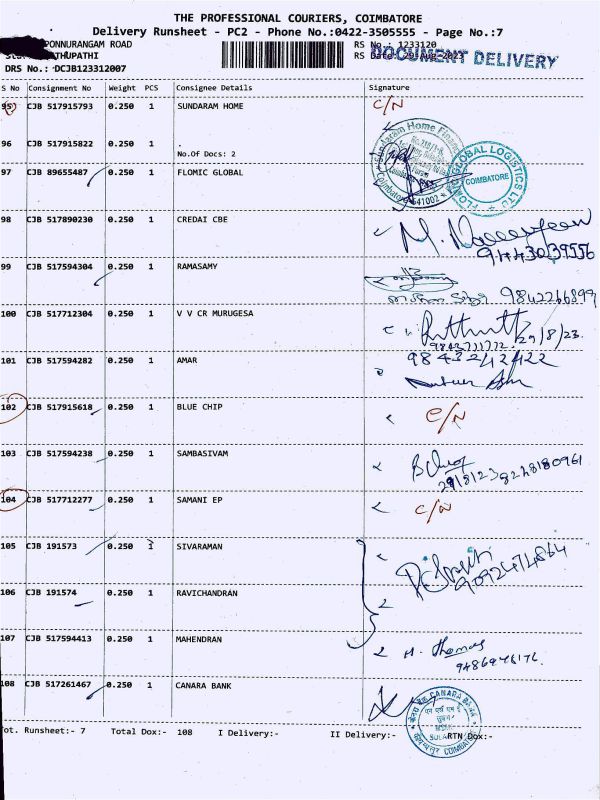 THE PROFESSIONAL COURIERS, COIMBATORE
Delivery Runsheet - PC2 - Phone No.:0422-3505555 - Page No.:7
PONNURANGAM ROAD
RS No.: 1233120
THUPATHI
RS Date: 29-Aug-2023
DOCUMENT DELIVERY
DRS No.: DCJB123312007
S No Consignment No Weight PCS Consignee Details Signature
95 CJB 517915793 0.250 1 SUNDARAM HOME C/N
96 CJB 517915822 0.250 1 .
No.Of Docs: 2
Sundaram Home Finance
Coimbatore 641002
97 CJB 89655487 0.250 1 FLOMIC GLOBAL
GLOBAL LOGISTICS LTD
COIMBATORE
98 CJB 517890230 0.250 1 CREDAI CBE
9443039556
99 CJB 517594304 0.250 1 RAMASAMY
9842266899
100 CJB 517712304 0.250 1 V V CR MURUGESA
9843711772 29/8/23
101 CJB 517594282 0.250 1 AMAR
98432 42422
102 CJB 517915618 0.250 1 BLUE CHIP C/N
103 CJB 517594238 0.250 1 SAMBASIVAM
29/8/23 8248180961
104 CJB 517712277 0.250 1 SAMANI EP C/N
105 CJB 191573 0.250 1 SIVARAMAN
9092474864
106 CJB 191574 0.250 1 RAVICHANDRAN
107 CJB 517594413 0.250 1 MAHENDRAN
H. Thomas
9486946176.
108 CJB 517261467 0.250 1 CANARA BANK
CANARA BANK
COIMBATORE
Tot. Runsheet:- 7 Total Dox:- 108 I Delivery:- II Delivery:- RTN Dox:-